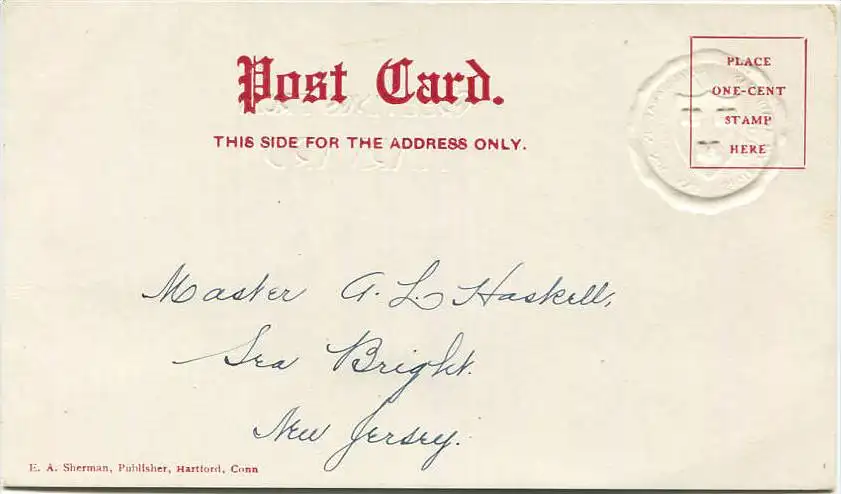 Post Card.
THIS SIDE FOR THE ADDRESS ONLY.
PLACE
ONE-CENT
STAMP
HERE
Master A. L. Haskell,
Sea Bright.
New Jersey.
E. A. Sherman, Publisher, Hartford, Conn